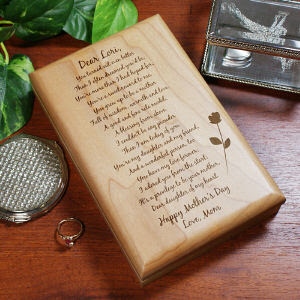 Dear Lori,
You turned out even better
Than I often dreamed you'd be,
You're more than I had hoped for,
You're a sweet reward to me.
You grew up to be a mother
Full of wisdom, warmth and love
A good and fine role model.
A blessing from above.
I couldn't be any prouder
Than I am today of you,
You're my daughter and my friend,
And a wonderful person, too.
You have my love forever
I adored you from the start,
It's a privilege to be your mother,
Dear daughter of my heart.
Happy Mother's Day
Love, Mom